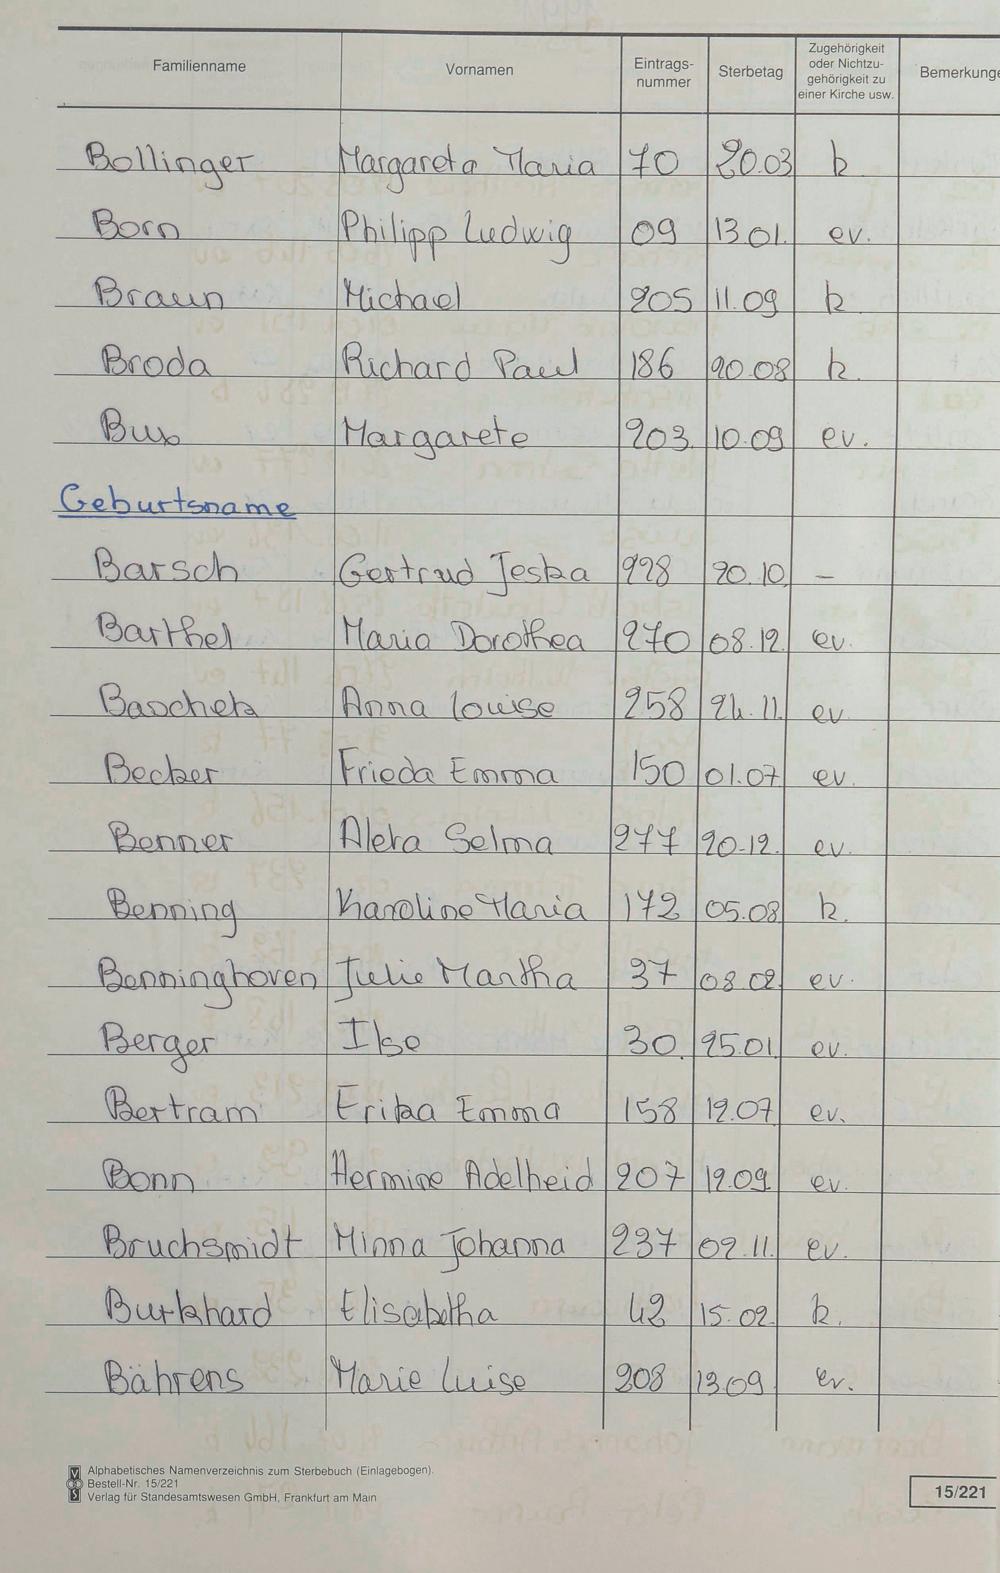 Familienname Vornamen Eintrags-nummer Sterbetag Zugehörigkeit oder Nichtzu-gehörigkeit zu einer Kirche usw. Bemerkunge
Bollinger Margareta Maria 70 20.03 k
Born Philipp Ludwig 09 13.01. ev.
Braun Michael 205 11.09 k
Broda Richard Paul 186 20.08 k.
Bux Margarete 203. 10.09 ev.
Geburtsname
Barsch Gertrud Jeska 228 20.10. –
Barthel Maria Dorothea 270 08.12. ev.
Baschek Anna Louise 258 24.11. ev
Becker Frieda Emma 150 01.07 ev.
Benner Selma 277 20.12. ev.
Benning Karoline Maria 172 05.08 k.
Benninghoven Julie Martha 37 08.02 ev.
Berger Ilse 30. 25.01. ev.
Bertram Erika Emma 158 12.07 ev.
Bonn Hermine Adelheid 207 12.09. ev.
Bruchsmidt Minna Johanna 237 02.11. ev.
Burkhard Elisabetha 42 15.02. k.
Bährens Marie Luise 208 13.09 ev.
Alphabetisches Namenverzeichnis zum Sterbebuch (Einlagebogen).
Bestell-Nr. 15/221
Verlag für Standesamtswesen GmbH, Frankfurt am Main
15/221